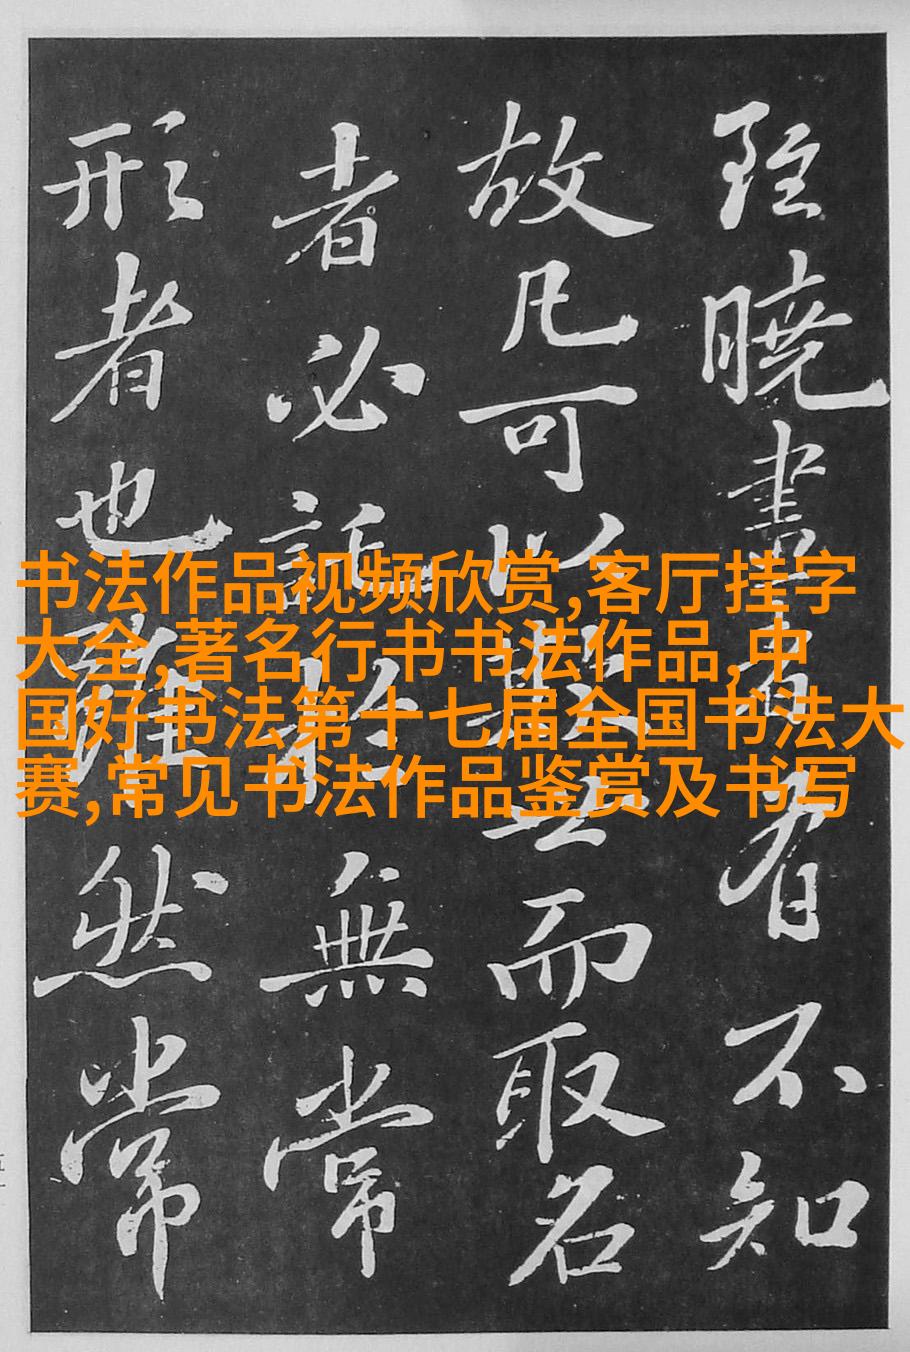 雖曉畫者有不知
故凡可以欺世而取名
者必託於無常
形者也雖然常
书法作品视频欣赏,客厅挂字
大全,著名行书书法作品,中
国好书法第十七届全国书法大
赛,常见书法作品鉴赏及书写